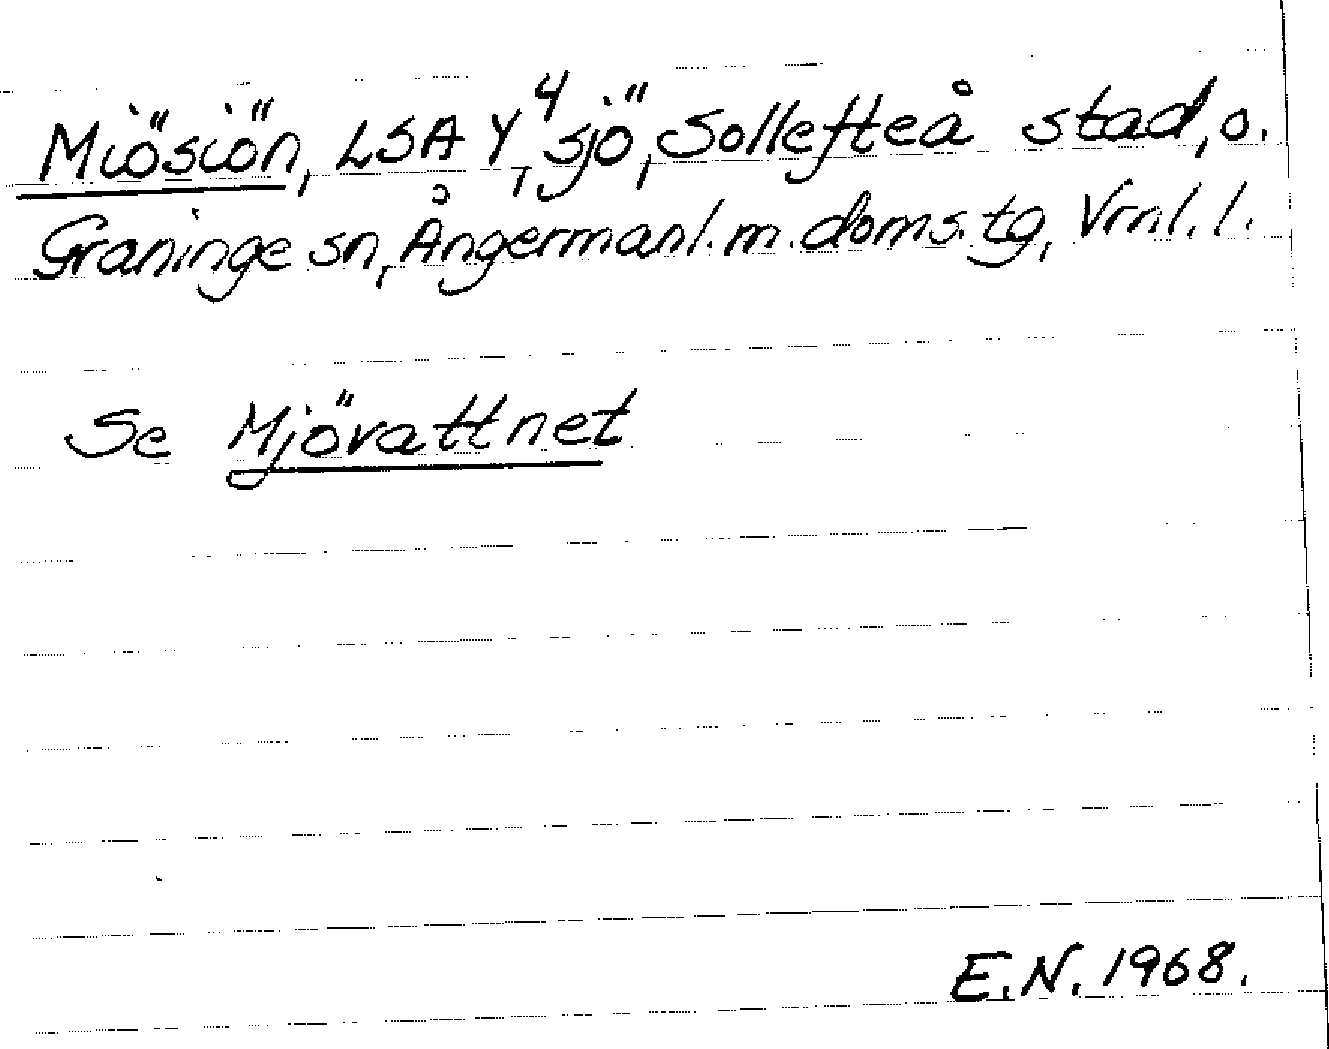 Miösiön, LSA Y⁴, sjö, Sollefteå stad, o.
Graninge sn, Ångermanl. m. doms. tg, Vrnl. l.
Se Mjövattnet
E.N. 1968.